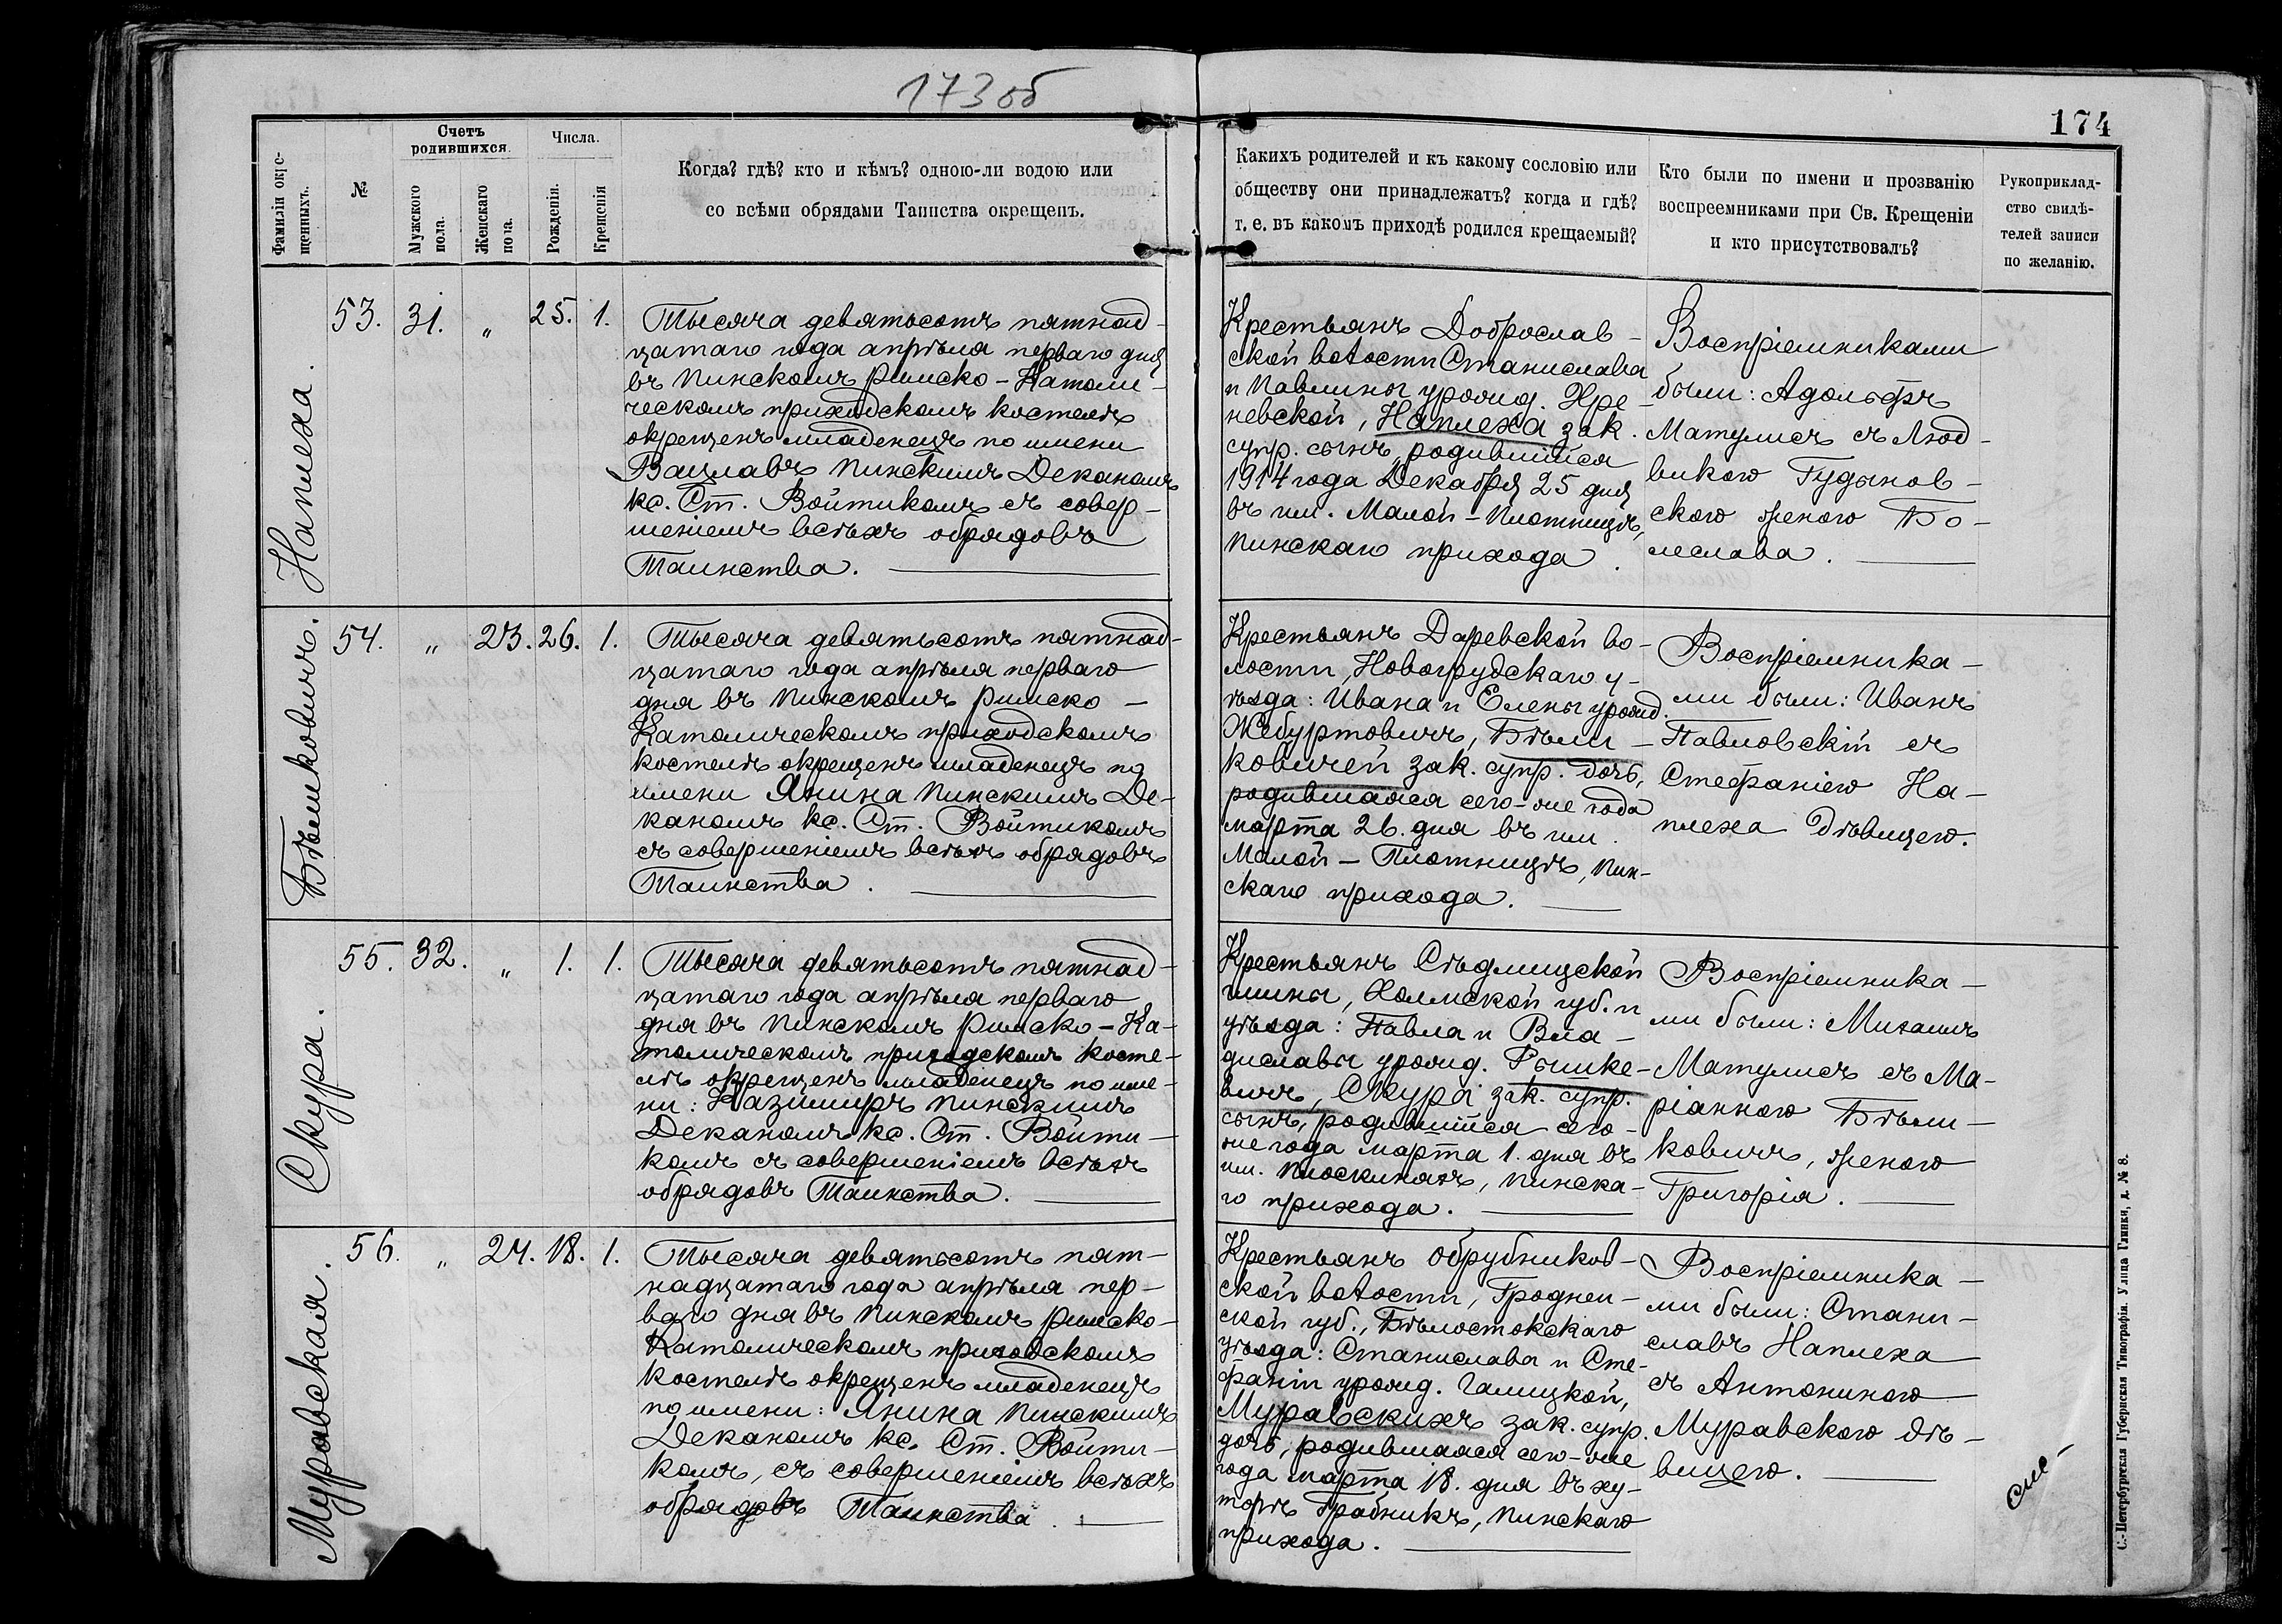 173 об
174
Фамилiи окре-
щенныхъ.
№
Счетъ
родившихся.
Мужского
пола.
Женскаго
пола.
Числа.
Рожденiя.
Крещенiя
Когда? гдѣ? кто и кѣмъ? одною-ли водою или
со всѣми обрядами Таинства окрещенъ.
Какихъ родителей и къ какому сословiю или
обществу они принадлежатъ? когда и гдѣ?
т. е. въ какомъ приходѣ родился крещаемый?
Кто были по имени и прозванiю
воспреемниками при Св. Крещенiи
и кто присутствовалъ?
Рукоприклад-
ство свидѣ-
телей записи
по желанiю.
Наплеха.
53. 31. „ 25. 1.
Тысяча девятьсотъ пятнад-
цатаго года апрѣля перваго дня
въ Пинскомъ Римско-Католи-
ческомъ приходскомъ костелѣ
окрещенъ младенецъ по имени
Вацлавъ Пинскимъ Деканомъ
кс. Ст. Войтикомъ съ совер-
шенiемъ всѣхъ обрядовъ
Таинства.
Крестьянъ Доброслав-
ской волости Станислава
и Павлины урожд. Кре-
невской, Наплеха зак.
супр. сынъ, родившiйся
1914 года Декабря 25 дня
въ им. Малой-Плотницѣ,
Пинскаго прихода.
Воспрiемниками
были: Адольфъ
Матулисъ съ Люд-
викою Гудынов-
скою женою Бо-
леслава.
Бѣликовичъ.
54. „ 23. 26. 1.
Тысяча девятьсотъ пятнад-
цатаго года апрѣля перваго
дня въ Пинскомъ Римско-
Католическомъ приходскомъ
костелѣ окрещенъ младенецъ по
имени Янина Пинскимъ Де-
каномъ кс. Ст. Войтикомъ
съ совершенiемъ всѣхъ обрядовъ
Таинства.
Крестьянъ Даревской во-
лости, Новогрудскаго у-
ѣзда: Ивана и Елены урожд.
Жебуртовичъ, Бѣли-
ковичей зак. супр. дочь,
родившаяся сего-же года
марта 26. дня въ им.
Малой-Плотницѣ, Пин-
скаго прихода.
Воспрiемника-
ми были: Иванъ
Павловскiй съ
Стефанiею На-
плеха дѣвицею.
Скура.
55. 32. „ 1. 1.
Тысяча девятьсотъ пятнад-
цатаго года апрѣля перваго
дня въ Пинскомъ Римско-Ка-
толическомъ приходскомъ косте-
лѣ окрещенъ младенецъ по име-
ни: Казимиръ Пинскимъ
Деканомъ кс. Ст. Войти-
комъ съ совершенiемъ всѣхъ
обрядовъ Таинства.
Крестьянъ Сѣдлищской
гмины, Холмской губ. и
уѣзда: Павла и Вла-
диславы урожд. Рышке-
вичъ, Скура зак. супр.
сынъ, родившiйся сего-
же года марта 1. дня въ
им. Плоскиняхъ, Пинска-
го прихода.
Воспрiемника-
ми были: Михаилъ
Матулисъ съ Ма-
рiанною Бѣли-
ковичъ, женою
Григорiя.
Муравская.
56. „ 24. 18. 1.
Тысяча девятьсотъ пят-
надцатаго года апрѣля пер-
ваго дня въ Пинскомъ Римско-
Католическомъ приходскомъ
костелѣ окрещенъ младенецъ
по имени: Янина Пинскимъ
Деканомъ кс. Ст. Войти-
комъ, съ совершенiемъ всѣхъ
обрядовъ Таинства.
Крестьянъ Обрубников-
ской волости, Гроднен-
ской губ., Бѣлостокскаго
уѣзда: Станислава и Сте-
фанiи урожд. Галицкой,
Муравскихъ зак. супр.
дочь, родившаяся сего-же
года марта 18. дня въ ху-
торѣ Грабникъ, Пинскаго
прихода.
Воспрiемника-
ми были: Стани-
славъ Наплеха
съ Антониною
Муравскою дѣ-
вицею.
С.-Петербургская Губернская Типографiя. Улица Глинки, д. № 8.